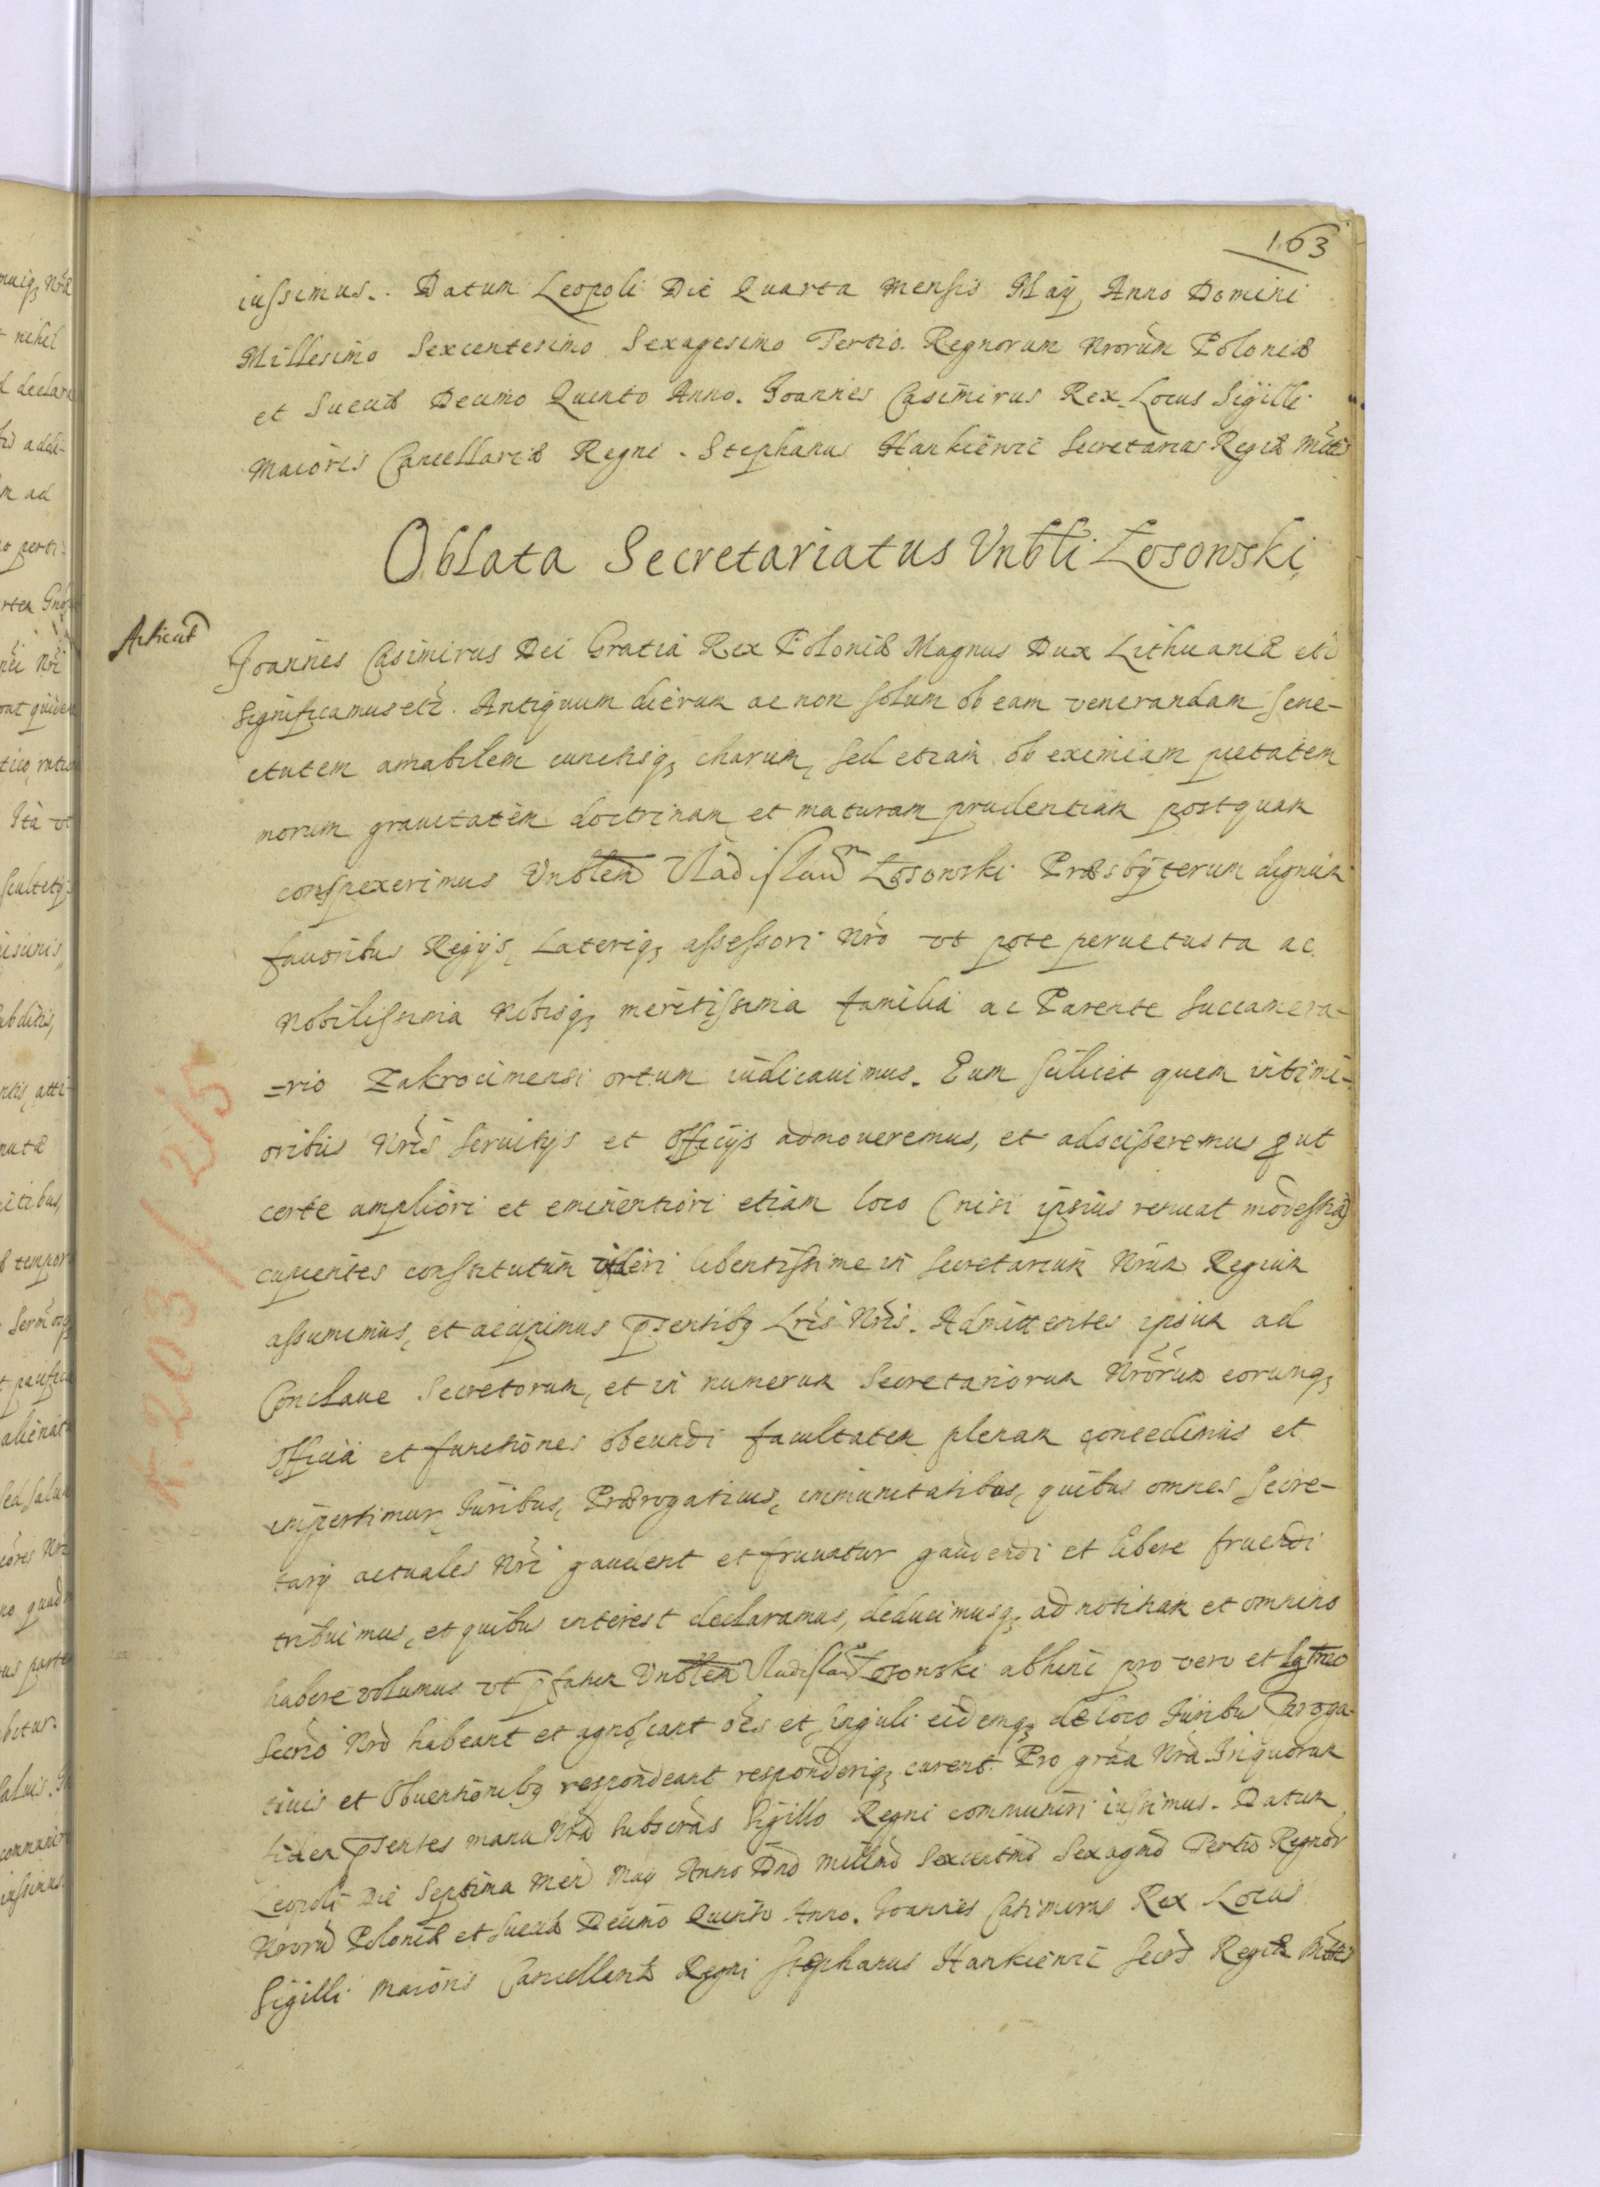 163
iussimus. Datum Leopoli Die Quarta Mensis Maÿ Anno Domini
Millesimo Sexcentesimo Sexagesimo Tertio. Regnorum Nrorum Poloniæ
et Sueciæ Decimo Quinto Anno. Joannes Casimirus Rex. Locus Sigilli
Maioris Cancellariæ Regni. Stephanus Hankiewic Secretarius Regiæ Mttis
Oblata Secretariatus Vnbli Łosowski
Joannes Casimirus Dei Gratia Rex Poloniæ Magnus Dux Lithuaniæ etc
Significamus etc. Antiquum dierum ac non solum ob eam venerandam sene-
ctutem amabilem cunctisq, charum, sed etiam ob eximiam pietatem
morum grauitatem doctrinam et maturam prudentiam postquam
conspexerimus Vnblem Vladislaum Łosowski Præsbÿterum dignum
fauoribus Regijs, Lateriq, assessori Nro ut pote peruetusta ac
Nobilissima Nobisq, meritissima familia ac Parente Succamera-
-rio Zakrocimensi ortum iudicauimus. Eum scilicet quem intimi-
oribus Nris seruitijs et officijs admoueremus, et adscisseremus put
certe ampliori et eminentiori etiam loco (nisi ipsius renuat modestia)
cupientes constitutum uideri libentissime in Secretarium Nrum Regium
assumimus, et accipimus pntibq Lris Nris. Admittentes ipsum ad
Conclaue Secretorum, et in numerum Secretariorum Nrorum eorumq,
officia et functiones obeundi facultatem plenam concedimus et
impertimur, Juribus, Prærogatiuis, immunitatibus, quibus omnes Secre-
tarÿ actuales Nri gaudent et fruuntur gaudendi et libere fruendi
tribuimus, et quibus interest declaramus, deducimusq, ad notitiam et omnino
habere volumus ut pfatum Vnblem Vladislaum Łosowski abhinc pro vero et lgtmo
Secrio Nro habeant et agnoscant oes et singuli eidemq, de loco Juribus Proga-
tiuis et obuentionibq respondeant responderiq, curent. Pro gra Nra In quorum
fidem psentes manu Nra subscras Sigillo Regni communiri iussimus. Datum
Leopoli Die Septima Men Maÿ Anno Dno Millmo Sexcentmo Sexagmo Tertio Regnor
Nrorum Poloniæ et Sueciæ Decimo Quinto Anno. Joannes Casimirus Rex Locus
Sigilli Maioris Cancellariæ Regni Stephanus Hankiewic Secrs Regiæ Mttis
k. 203 / 215